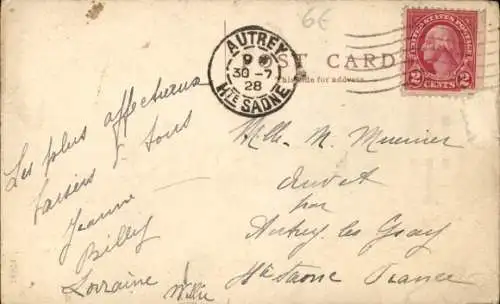 6€
AUTREY
30-7
28
HTE SAONE
POST CARD
This side for address
UNITED STATES POSTAGE
2 CENTS 2
Les plus affectueux
baisers à tous
Jeanne
Billy
Lorraine
Willie
Mlle. M. Meunier
par
Autrey les Gray
Hte Saone France